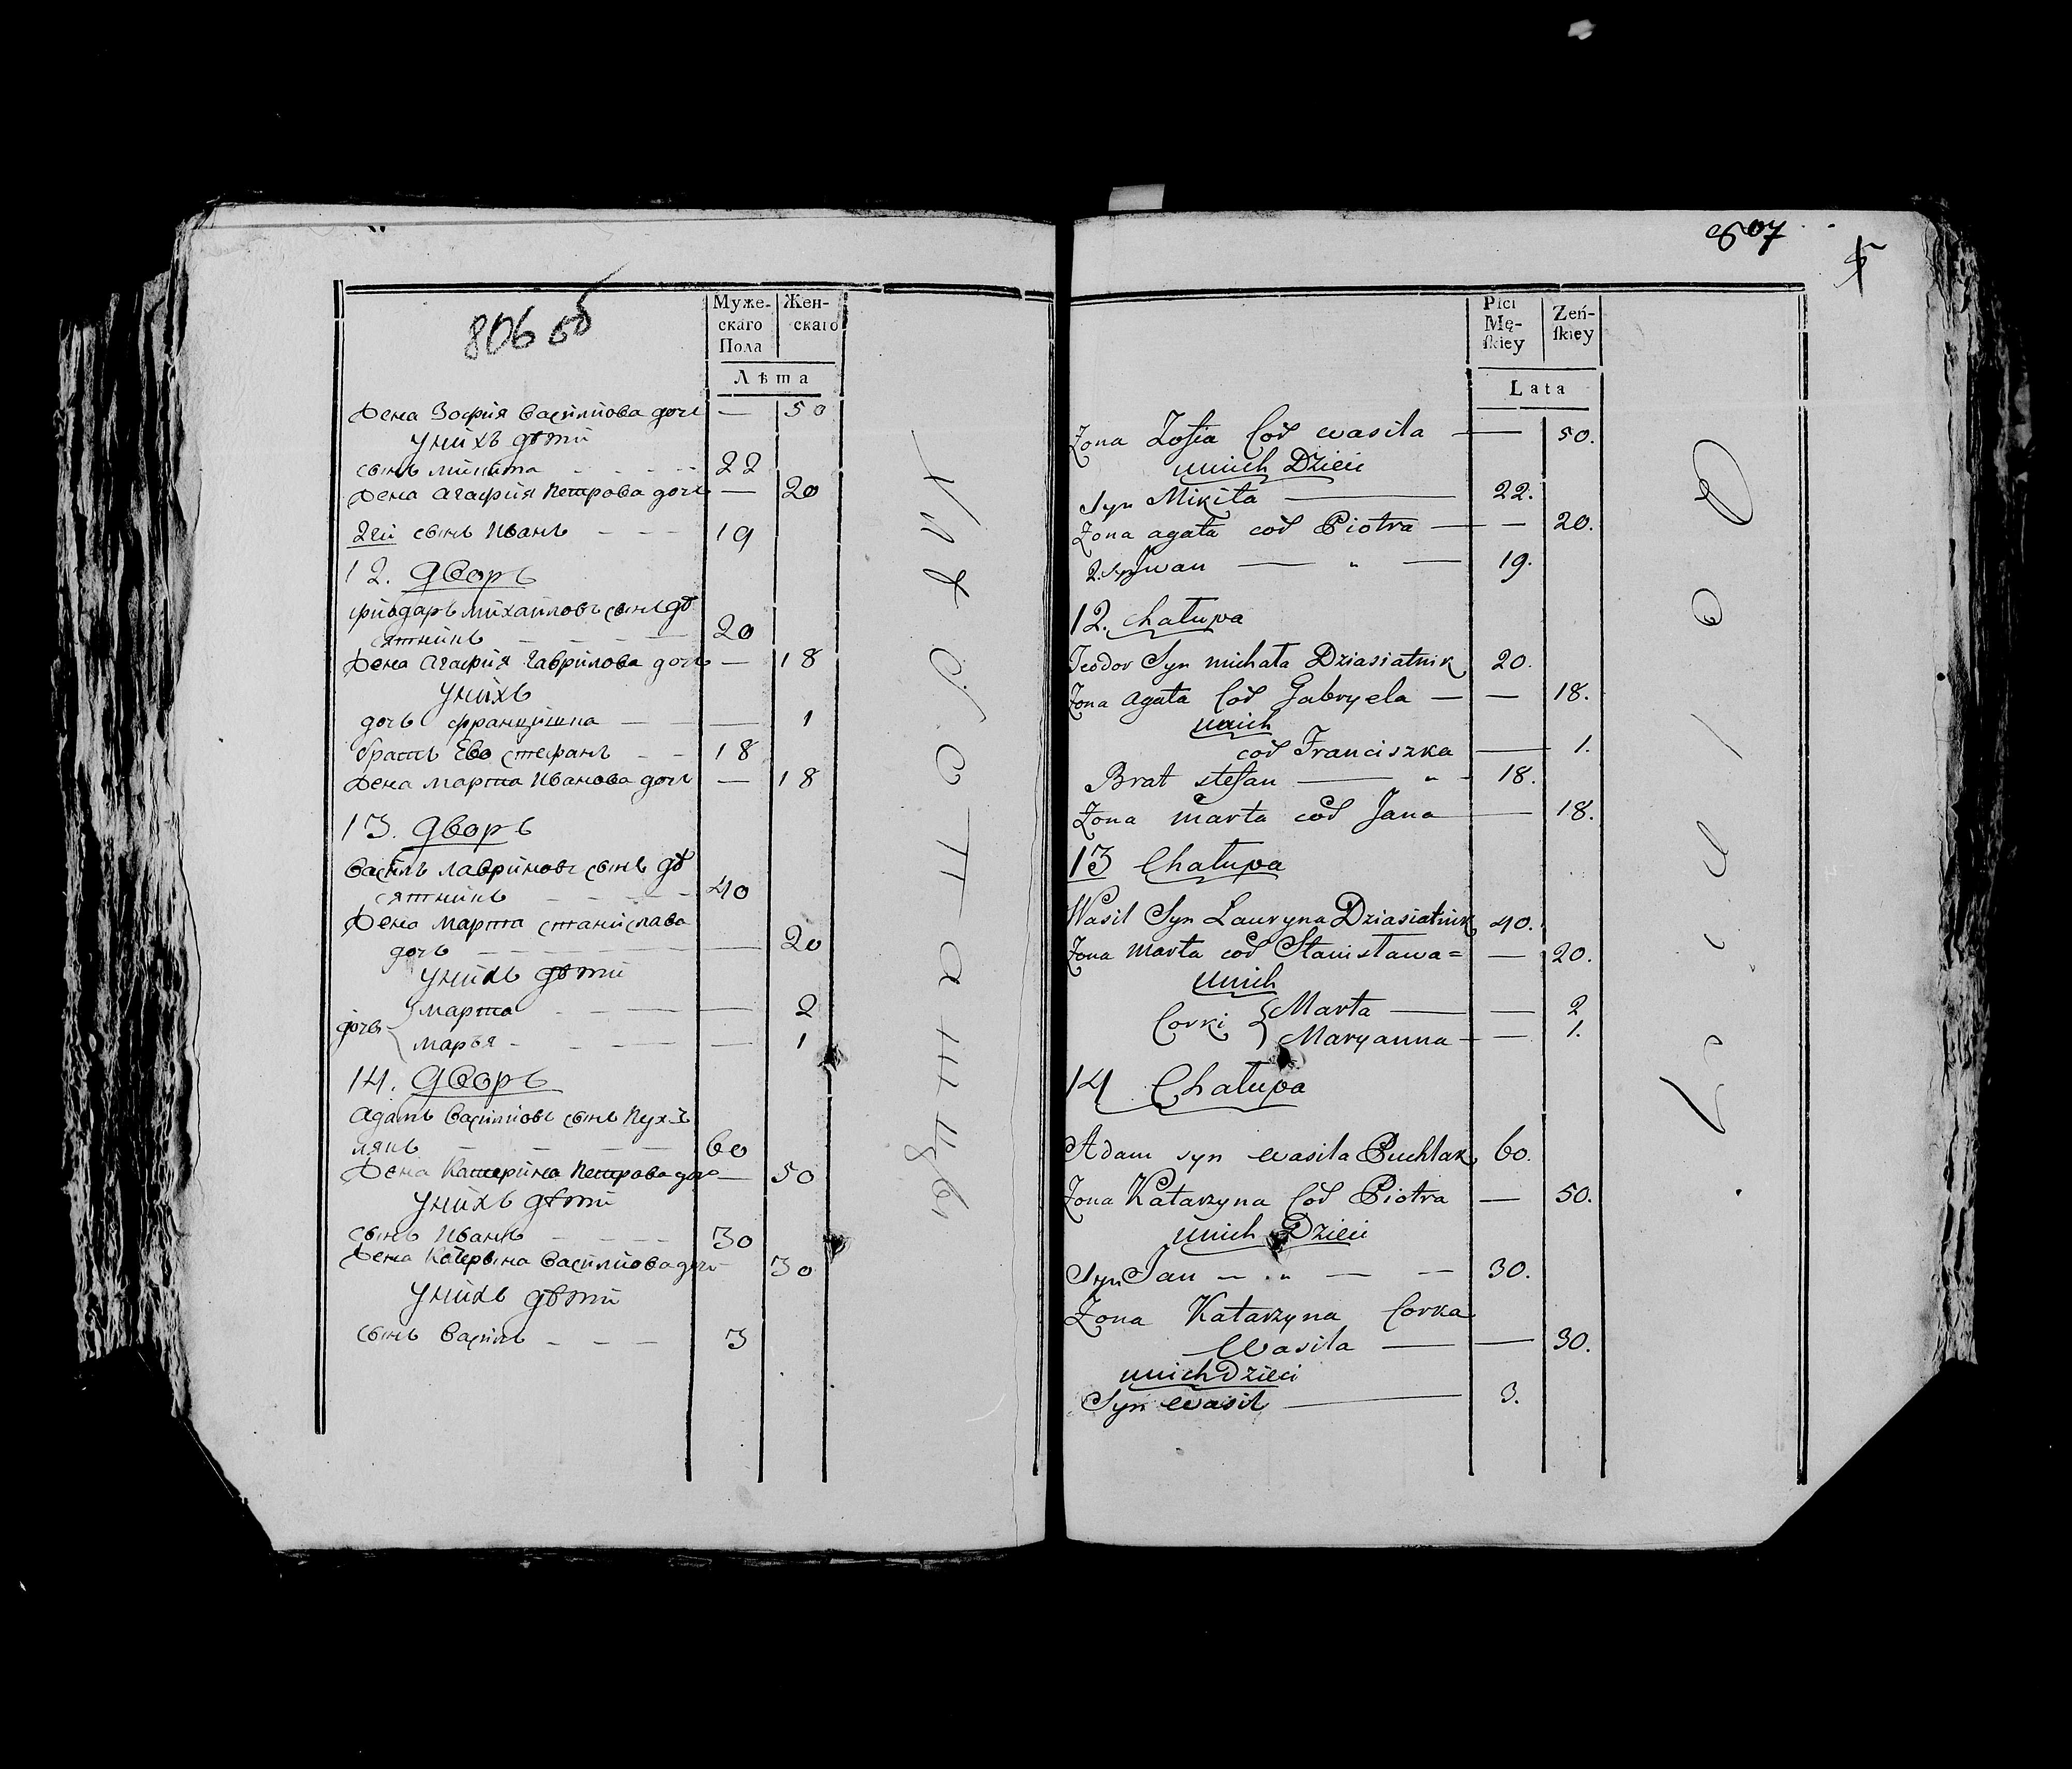 806 об
Муже-
скаго
Пола
Жен-
скаго
Лѣта
Жена Зофия Василиова дочь — 50
У них дѣти
сынъ Микита 22
Жена Агафия Петрова дочь — 20
2гй сынъ Иванъ 19
12. Дворъ
Фиодаръ Михайловъ сынъ Дѣ
сятникъ 20
Жена Агафия Гаврилова дочь — 18
У нихъ
дочь Францишка — 1
братъ Ево Стефанъ 18
Жена Марта Иванова дочь — 18
13. Дворъ
Василь Лавриновъ сынъ Дѣ
сятникъ 40
Жена Марта Станислава
дочь — 20
У нихъ дѣти
дочь { Марта — 2
Марья — 1
14. Дворъ
Адамъ Василиовъ сынъ Пух
лякъ 60
Жена Катерина Петрова доч — 50
У нихъ дѣти
сынъ Иванъ 30
Жена Катерына Василиова дочь 30
У нихъ дѣти
сынъ Василь 3
807
Płci
Mę-
skiey
Żeń-
skiey
Lata
Zona Zofia Cod wasila — 50.
unich Dzieci
Syn Mikita — 22.
Zona agata cod Piotra — 20.
2. Syn Jwan — " — 19.
12. Chałupa
Teodor Syn michała Dziasiatnik 20.
Zona agata Cod Gabryela — — 18.
unich
cod Franciszka — 1.
Brat stefan — " - 18.
Zona marta cod Jana — 18.
13 Chałupa
Wasil Syn Lauryna Dziasiatnik 40.
Zona marta cod Stanisława = — 20.
unich
Corki { Marta — — 2
Maryanna — — 1.
14 Chałupa
Adam syn wasila Puchlak 60.
Zona Katarzyna Cod Piotra — 50.
unich Dzieci
Syn Jan — " — — 30.
Zona Katarzyna Corka
Wasila — — 30.
unich Dzieci
Syn wasil — 3.